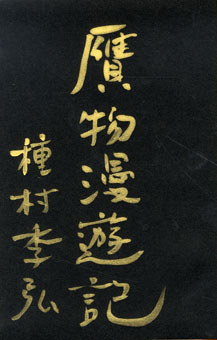 贋物漫遊記
種村季弘